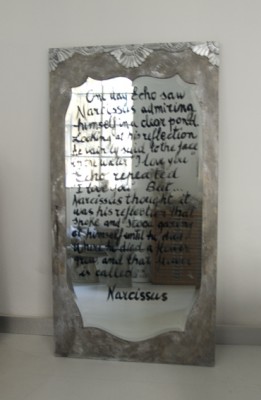 One day Echo saw
Narcissus admiring
himself in a clear pond
Looking at his reflection
he vainly said to the face
in the water "I love you"
Echo repeated
I love you But...
Narcissus thought it
was his reflection that
spoke and stood gazing
at himself until he died
where he died a flower
grew and that flower
is called
Narcissus